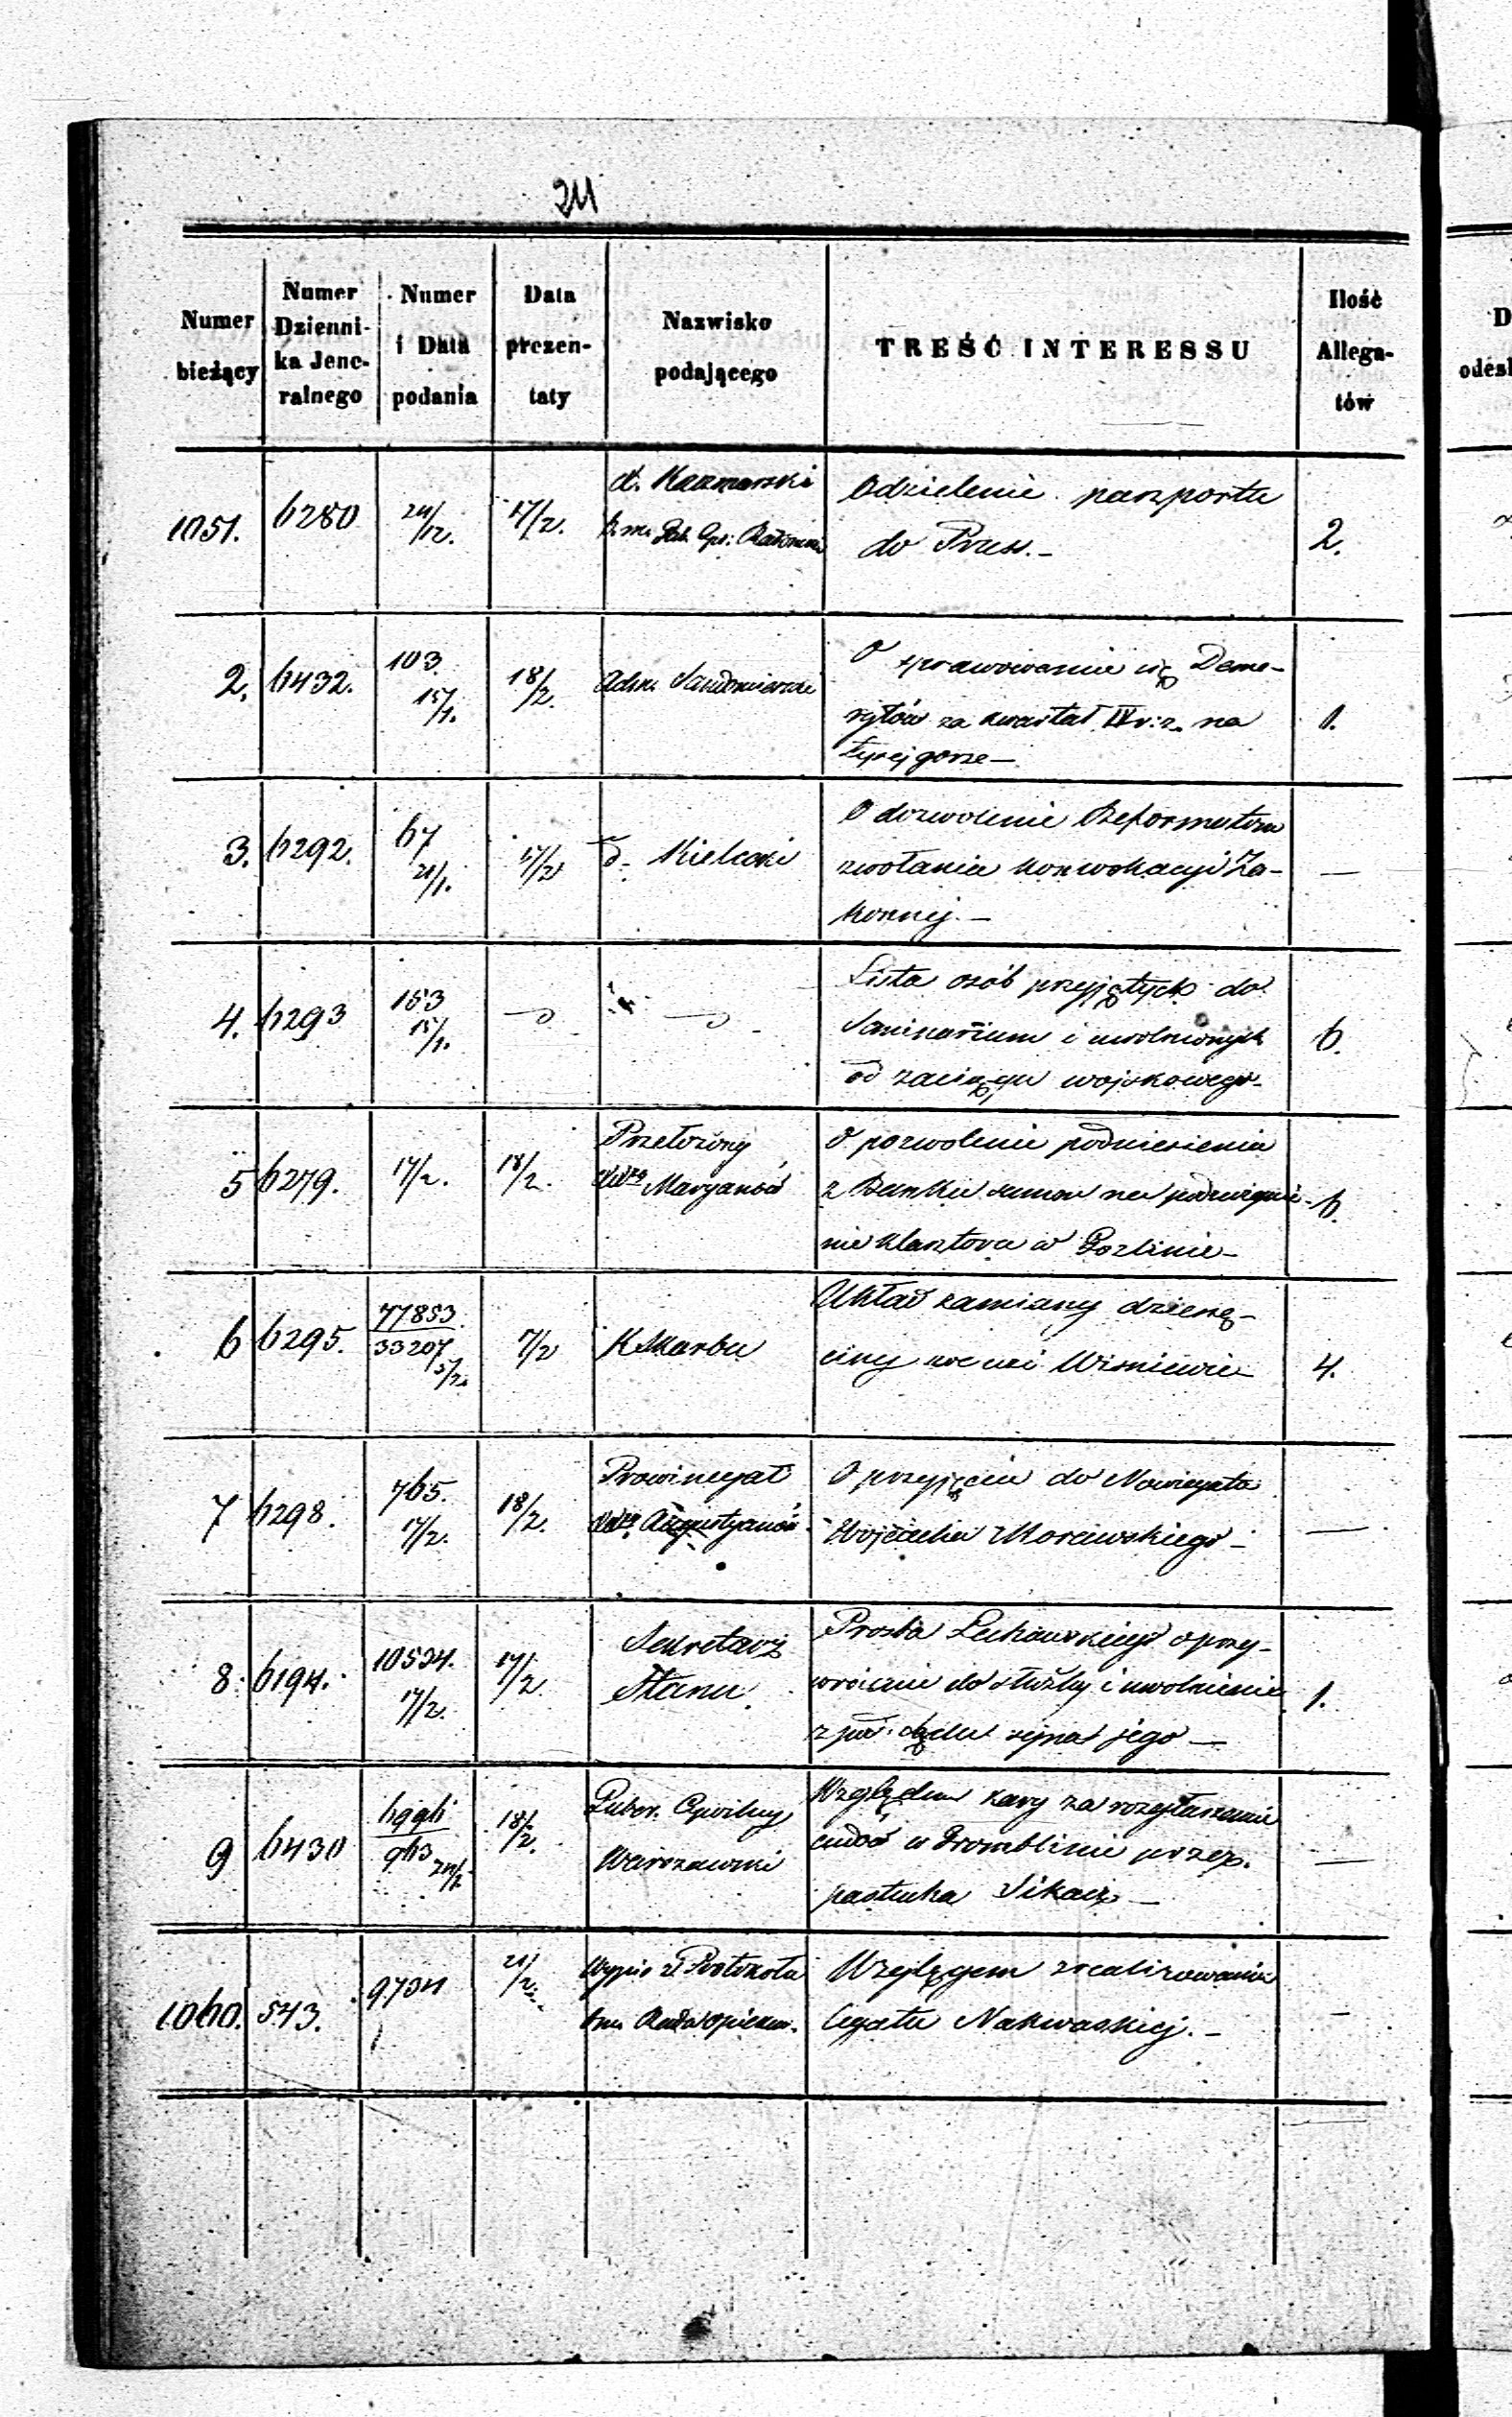 211
Numer bieżący
Numer Dzienni-ka Jene-ralnego
Numer i Data podania
Data prezen-taty
Nazwisko podającego
TREŚĆ INTERESSU
Ilość Allega-tów
1051. 6280 24/12. 17/2.
X. Kaczmarski
Odzielenie paszportu
do Pruss.–
2.
2. 6432. 103 15/1. 18/2.
Adm. Sandomierski
O sprawowaniu się Deme-
rytów za kwartał IV r: z. na
Łysej gorze–
1.
3. 6292. 67 21/1. 17/2
d. Kielecki
O dozwolenie Reformatom
zwołania konwokacyi Za-
konnej.–
—
4. 6293 153 15/1.
Lista osób przyjętych do
Seminarium i uwolnionych
od zaciągu wojskowego–
6.
5 6279. 17/2. 18/2.
Przełożony
XXży Maryanów
O pozwolenie podniesienia
z Banku summ na
nie klasztoru w Goźlinie–
6.
6 6295. 77853 33207 5/2. 7/2
K Skarbu
Układ zamiany dziesię-
ciny we wsi Wiśniewie–
4.
7 6298. 765. 17/2. 18/2.
Prowincyał
XXży Augustyanów
O przyjęciu do Nowicyatu
Wojciecha Morawskiego–
—
8. 6194. 10534. 17/2. 17/2.
Sekretarz
Stanu
Prośba Lechowskiego o przy-
wrócenie do służby i uwolnienie
z pod jego —
1.
9 6430 6996 963 18/2.
Guber. Cywilny
Warszawski
Względem kary za rozgłaszanie
cudów w przez
pastucha Sikacz —
—
1060. 543. 9734 21/2.
Wypis z Protokołu
Rada Opiekun.
Względem zrealizowania
legatu Nakwaskiej.–
–